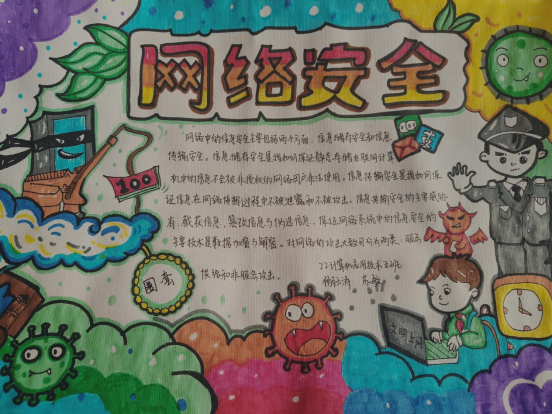 网络安全
网络中的信息安全主要包括两个方面，信息储存安全和信息
传输安全。信息储存安全是指如何保证静态存储在联网计算
机中的信息不会被非授权的网络用户非法使用。信息传输安全是指如何保
证信息在网络传输过程中不被泄露和不被攻击。信息传输安全的主要威胁
有：截获信息、篡改信息与伪造信息，保证网络系统中的信息安全的
主要技术是数据加密与解密。对网络的攻击大致可分为两类：服务
攻击和非服务攻击。
22计算机应用技术
100
圈套
文明上网